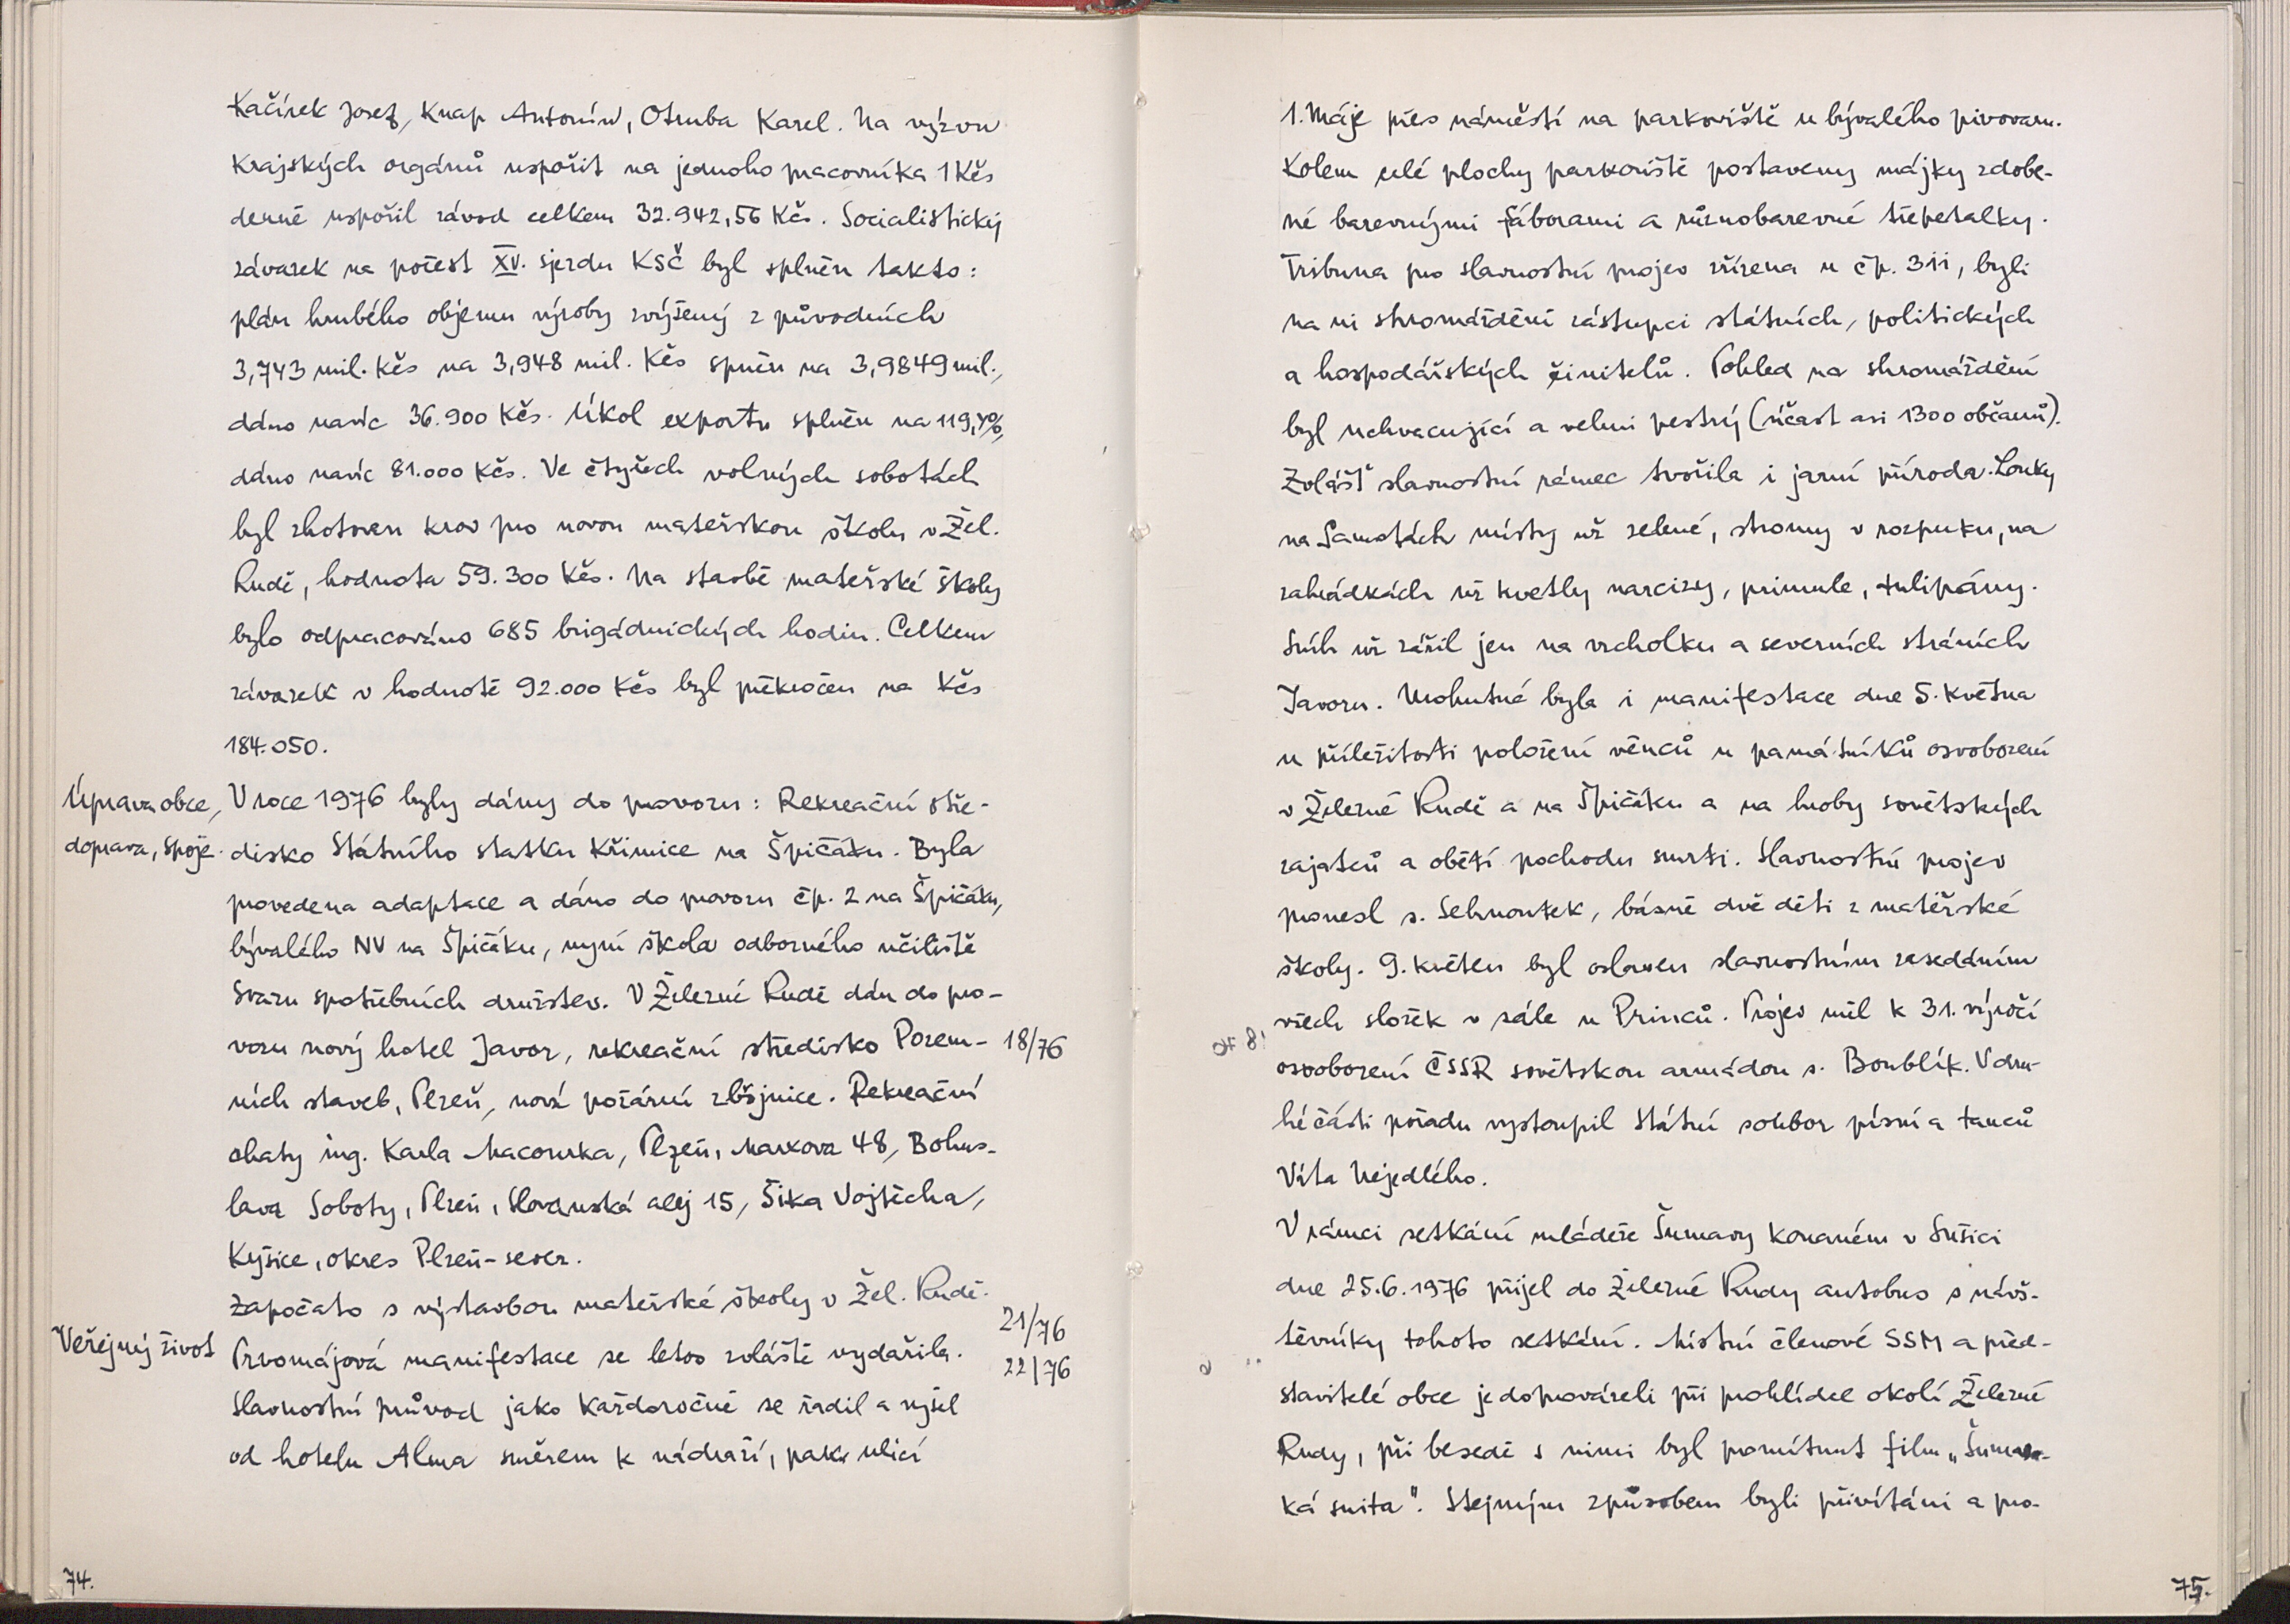 Kačírek Josef, Knap Antonín, Otruba Karel. Na výzvu
krajských orgánů uspořit na jednoho pracovníka 1 Kčs
denně uspořil závod celkem 32.942,56 Kčs. Socialistický
závazek na počest XV. sjezdu KSČ byl splněn takto:
plán hrubého objemu výroby zvýšený z původních
3,743 mil. Kčs na 3,948 mil. Kčs spněn na 3,9849 mil.,
dáno navíc 36.900 Kčs. Úkol exportu splněn na 119,4%,
dáno navíc 81.000 Kčs. Ve čtyřech volných sobotách
byl zhotoven krov pro novou mateřskou školu v Žel.
Rudě, hodnota 59.300 Kčs. Na stavbě mateřské školy
bylo odpracováno 685 brigádnických hodin. Celkem
závazek v hodnotě 92.000 Kčs byl překročen na Kčs
184.050.
Úprava obce,
doprava, spoje.
V roce 1976 byly dány do provozu: Rekreační stře-
disko Státního statku Křimice na Špičáku. Byla
provedena adaptace a dáno do provozu čp. 2 na Špičáku,
bývalého NV na Špičáku, nyní škola odborného učiliště
Svazu spotřebních družstev. V Železné Rudě dán do pro-
vozu nový hotel Javor, rekreační středisko Pozem- 18/76
ních staveb, Plzeň, nová požární zbrojnice. Rekreační
chaty ing. Karla Macourka, Plzeň, Markova 48, Bohus-
lava Soboty, Plzeň, Slovanská alej 15, Šika Vojtěcha,
Kyšice, okres Plzeň-sever.
Započato s výstavbou mateřské školy v Žel. Rudě.
21/76
Veřejný život
Prvomájová manifestace se letos zvláště vydařila.
22/76
Slavnostní průvod jako každoročně se řadil a vyšel
od hotelu Alma směrem k nádraží, pak ulicí
74.
1. Máje přes náměstí na parkoviště u bývalého pivovaru.
Kolem celé plochy parkoviště postaveny májky zdobe-
né barevnými fáborami a různobarevné třepetalky.
Tribuna pro slavnostní projev zřízena u čp. 311, byli
na ni shromážděni zástupci státních, politických
a hospodářských činitelů. Pohled na shromáždění
byl uchvacující a velmi pestrý (účast asi 1300 občanů).
Zvlášť slavnostní rámec tvořila i jarní příroda. Louky
na Samotách místy už zelené, stromy v rozpuku, na
zahrádkách už kvetly narcizy, primule, tulipány.
Sníh už zářil jen na vrcholku a severních stráních
Javoru. Mohutná byla i manifestace dne 5. května
u příležitosti položení věnců u památníků osvobození
v Železné Rudě a na Špičáku a na hroby sovětských
zajatců a obětí pochodu smrti. Slavnostní projev
pronesl s. Sehnoutek, básně dvě děti z mateřské
školy. 9. květen byl oslaven slavnostním zasedáním
všech složek v sále u Princů. Projev měl k 31. výročí
osvobození ČSSR sovětskou armádou s. Boublík. V dru-
hé části pořadu vystoupil Státní soubor písní a tanců
Víta Nejedlého.
V rámci setkání mládeže Šumavy konaném v Sušici
dne 25.6.1976 přijel do Železné Rudy autobus s návš-
těvníky tohoto setkání. Místní členové SSM a před-
stavitelé obce je doprováželi při prohlídce okolí Železné
Rudy, při besedě s nimi byl promítnut film „Šumavs-
ká suita". Stejným způsobem byli přivítáni a pro-
75.